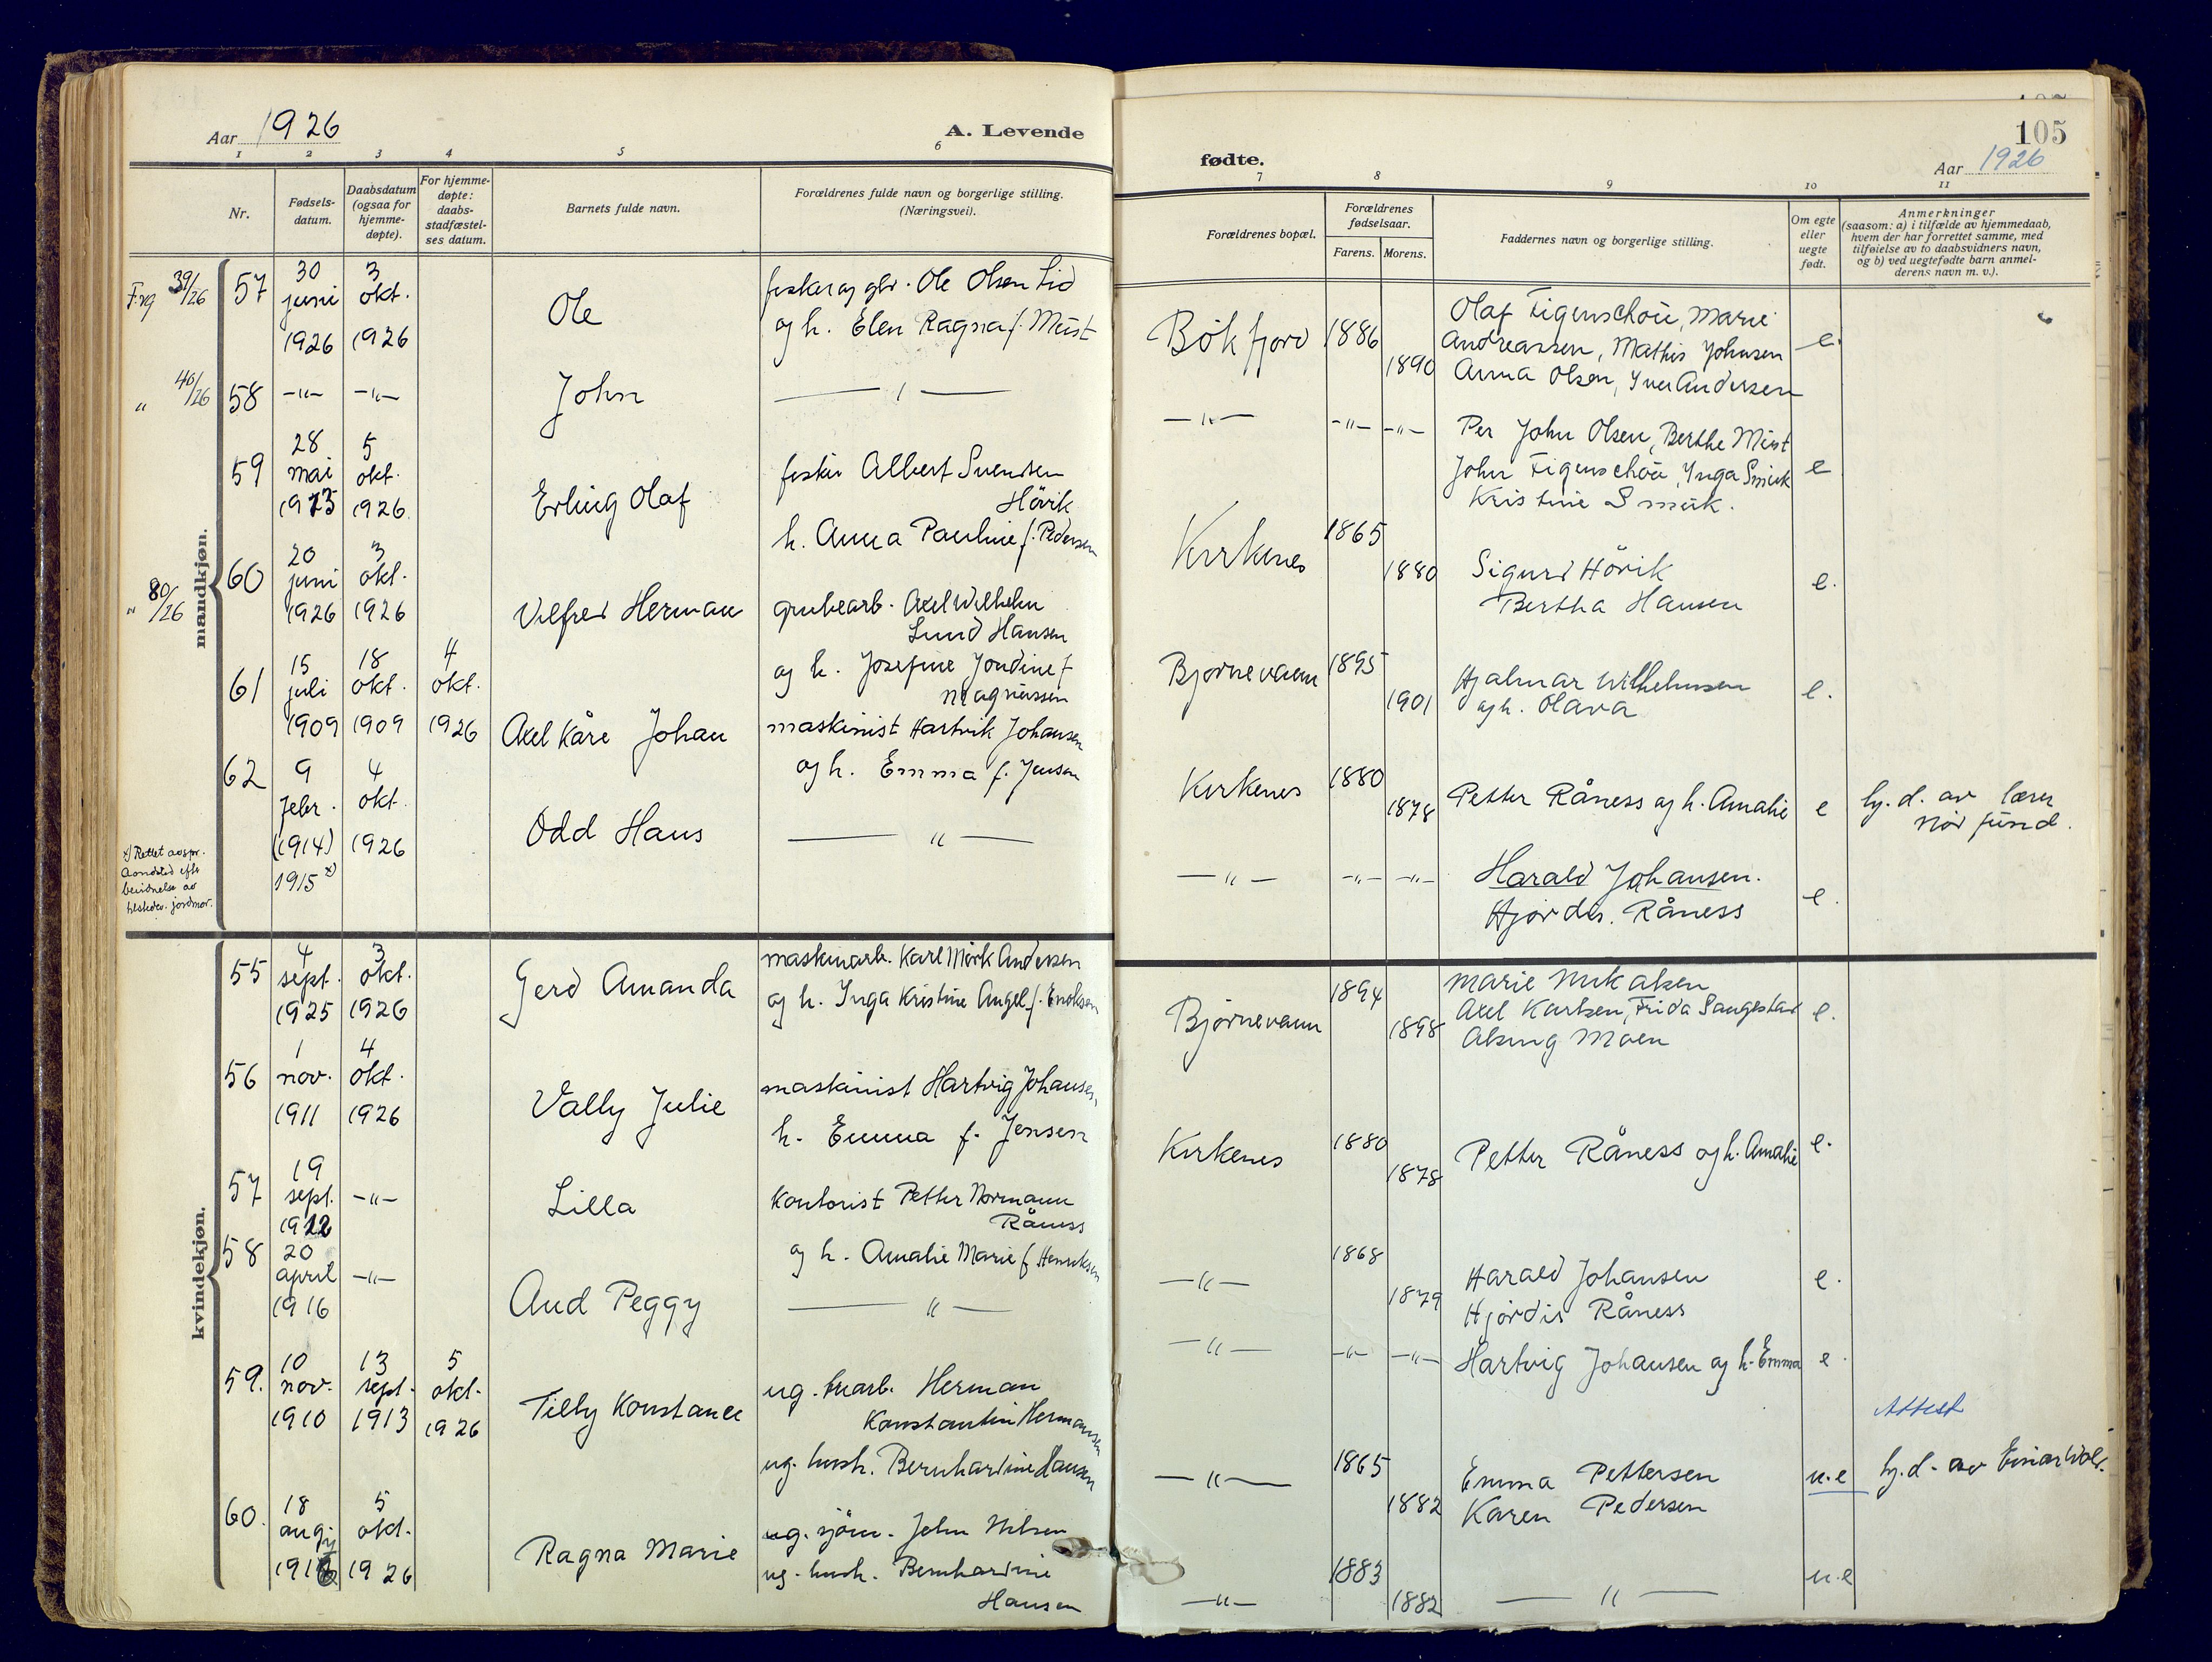 Aar 1926
A. Levende
1 2 3 4 5 6
Nr.
Fødsels-
datum.
Daabsdatum
(ogsaa for
hjemme-
døpte).
For hjemme-
døpte:
daabs-
stadfæstel-
ses datum.
Barnets fulde navn.
Forældrenes fulde navn og borgerlige stilling.
(Næringsvei).
mandkjøn.
39/26 57
30 juni 1926
3 okt. 1926
Ole
fisker og gbr. Ole Olsen Lid
og h. Elen Ragna f. Must
" 40/26 58 -"- -"-
John
59
28 mai
5 okt. 1926
Erling Olaf
fisker Albert Svendsen
Hövik
h. Anna Pauline f. Pedersen
" 80/26 60
20 juni 1926
3 okt. 1926
Vilfred Herman
grubearb. Axel Wilhelm
Lund Hansen
og h. Josefine Jordine f.
Magnussen
61
15 juli 1909
18 okt. 1909
4 okt. 1926
Axel Kåre Johan
maskinist Hartvik Johansen
og h. Emma f. Jensen
62
9 febr. (1914) 1915 x)
4 okt. 1926
Odd Hans
"
x) Rettet
jordmor.
kvindekjøn.
55
4 sept. 1925
3 okt. 1926
Gerd Amanda
maskinarb. Karl Mörk Andersen
og h. Inga Kristine Angel f. Enoksen
56
1 nov. 1911
4 okt. 1926
Vally Julie
maskinist Hartvig Johansen,
h. Emma f. Jensen
57
19 sept.
-"-
Lilla
kontorist Petter Normann
Råness
og h. Amalie Marie f Henriksen
58
20 april 1916
-"-
Aud Peggy
"
59.
10 nov. 1910
13 sept. 1913
5 okt. 1926
Tilly Konstance
ug. Herman
Konstantin Hermansen
ug. hush. Bernhardine Hansen
60.
18 aug.
5 okt. 1926
Ragna Marie
ug. sjöm. John Nilsen
ug. hush. Bernhardine
Hansen
105
fødte.
Aar 1926
7 8 9 10 11
Forældrenes bopæl.
Forældrenes
fødselsaar.
Farens. Morens.
Faddernes navn og borgerlige stilling.
Om egte
eller
uegte
født.
Anmerkninger
(saasom: a) i tilfælde av hjemmedaab,
hvem der har forrettet samme, med
tilføielse av to daabsvidners navn,
og b) ved uegtefødte barn anmel-
derens navn m. v.).
Bökfjord 1886 1890
Olaf Figenschou, Marie
Andreassen, Mathis Johnsen
Anna Olsen, Iver Andersen
e.
-"- -"- -"-
Per John Olsen, Berthe Must
John Figenschou, Inga Smuk
Kristine Smuk.
e
Kirkenes 1865 1880
Sigurd Hövik
Bertha Hansen
e.
Björnevann 1895 1901
Hjalmar Wilhelmsen
og h. Olava
e.
Kirkenes 1880 1878
Petter Råness og h. Amalie
e
hj. d. av lærer
Norfund.
-"- -"- -"-
Harald Johansen.
Hjördis. Råness
e.
Björnevann 1894 1898
Marie Mikalsen
Axel Karlsen, Frida Saugestad
Moen
e.
Kirkenes 1880 1878
Petter Råness og h. Amalie
e.
-"- 1868 1879
Harald Johansen
Hjördis Råness
e.
-"- -"- -"-
Hartvig Johansen og h. Emma
e.
-"- 1865 1882
Emma Pettersen
Karen Pedersen
u.e
Attest
hj. d. av Einar
-"- 1883 1882
"
u.e